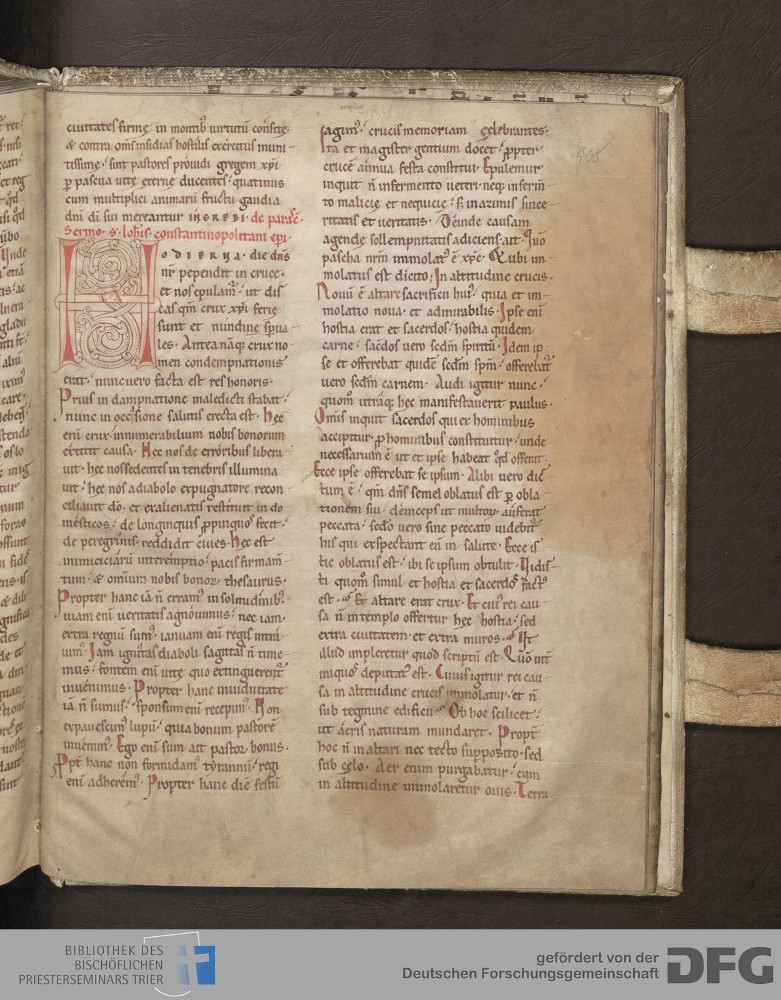 ciuitates firme in montib' uirtutū consite·
& contra om̄s insidias hostiles exercitus muni
tissime· sint pastores ꝓuidi gregem xp̄i
ꝑ pascua uite eterne ducentes· quatinus
cum multiplici animarū fructu gaudia
dn̄i di sui mereantur INGREDI· de parasc̄·
Sermo· s· Ioh̄is· constantinopolitani epi·
HODIERNA· die dn̄s
nr̄ pependit in cruce·
et nos epulam'· ut dis
cas qm̄ crux xp̄i ferie
sunt et nundine sp̄ua
les· Antea nāq; crux no
men condempnationis
erat· nunc uero facta est res honoris·
Prius in dampnatione maledicti stabat·
nunc in occasione salutis erecta est· Hec
eni crux innumerabilium nobis bonorum
extitit causa· Hec nos de erroribus libera
uit· hec nos sedentes in tenebris illumina
uit· hec nos a diabolo expugnatore recon
ciliauit dō· et ex alienatis restituit in do
mesticos· de longinquis ꝓpinquos fecit·
de peregrinis reddidit ciues· Hec est
inimicitiarū interemptio· pacis firmam̄
tum· & omium nobis bonoꝝ thesaurus·
Propter hanc iā n̄ erram' in solitudinib'·
uiam eni ueritatis agnouimus· nec iam
extra regnū sum'· ianuam eni regis inuen
im'· Iam ignitas diaboli sagittas n̄ time
mus· fontem eni uite quo extinguerent'
inuenimus· Propter hanc in uiduitate
iā n̄ sumus· sponsum eni recepim'· Non
expauescim' lupū· quia bonum pastorē
inuenim'· Ego eni sum ait pastor bonus·
Ppt̄ hanc non formidam' tyrannū· regi
eni adherem'· Propter hanc die festū
sagim'· crucis memoriam celebrantes·
Ita et magister gentium docet· ꝓpter
crucē annua festa constitui· Epulemur
inquit n̄ in fermento ueteri· neq; in ferm̄
to malicie et nequicie· s; in azimis since
ritatis et ueritatis· Deinde causam
agende sollempnitatis adiciens· ait· Quō
pascha nr̄m immolat' ē xp̄c· Sed ubi im
molatus est dicito· In altitudine crucis·
Nouū ē altare sacrificii hui'· quia et im
molatio noua· et admirabilis· Ipse eni
hostia erat et sacerdos· hostia quidem
carne· sacdos uero sedm̄ spiritū· Idem ip
se et offerebat quidē sedm̄ spm̄· offerebat'
uero sedm̄ carnem· Audi igitur nunc·
quom̄ utraq; hec manifestauerit paulus·
Omis inquit sacerdos qui ex hominibus
accipitur ꝓ hominibus constituitur· unde
necessarium ē ut et ipse habeat qd̄ offerat·
Ecce ipse offerebat se ipsum· Alibi uero dic
tum ē· qm̄ dn̄s semel oblatus est ꝑ obla
tionem sui· deinceps ut multoꝝ auferat
peccata· secdo uero sine peccato uidebit'
his qui exspectant eū in salutē· Ecce is
tic oblatus est· ibi se ipsum obtulit· Vidis
ti quom̄ simul et hostia et sacerdos fact'
est· Et altare erat crux· Et cui' rei cau
sa n̄ in templo offertur hec hostia· sed
extra ciuitatem et extra muros· Ut
illud impleretur quod scriptū est· Quō int̄
iniquos deputat' est· Cuius igitur rei cau
sa in altitudine crucis immolatur· et n̄
sub tegmine edificii· Ob hoc scilicet·
ut aeris naturam mundaret· Propt̄
hoc n̄ in altari nec tecto supposito· sed
sub celo· Aer enim purgabatur· cum
in altitudine immolaretur ouis· Terra
BIBLIOTHEK DES
BISCHÖFLICHEN
PRIESTERSEMINARS TRIER
gefördert von der
Deutschen Forschungsgemeinschaft
DFG